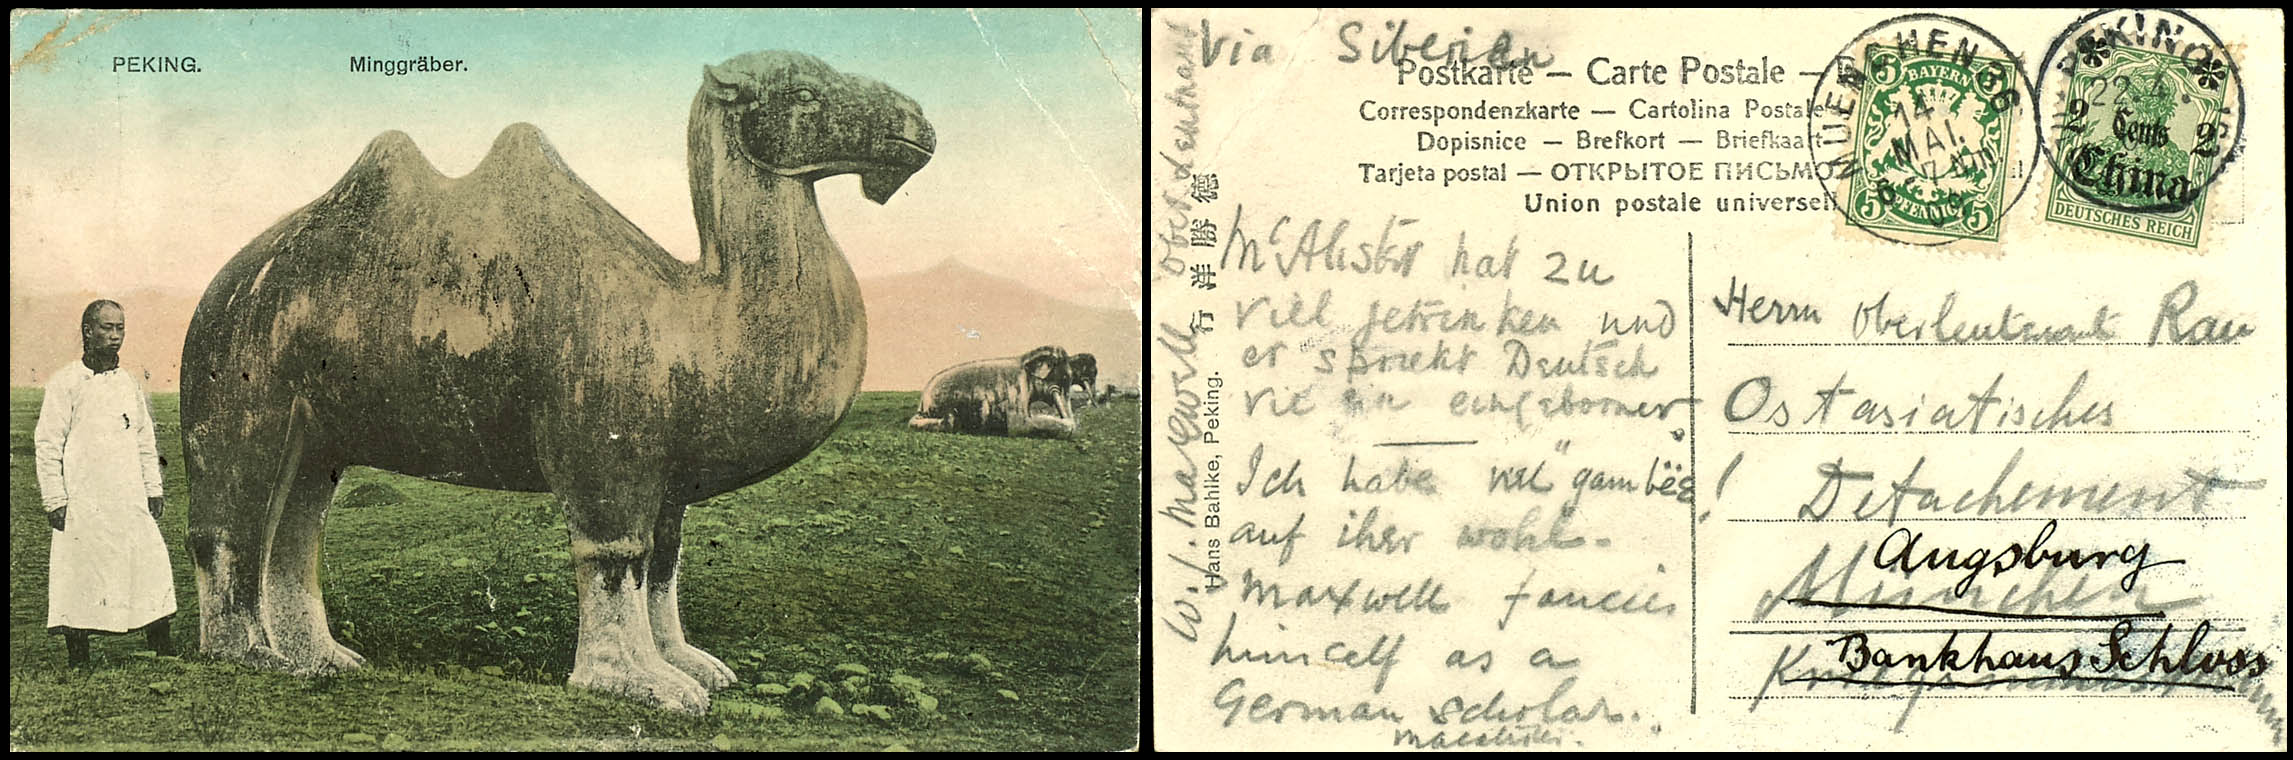 PEKING.
Minggräber.
Via Siberien
Postkarte — Carte Postale —
Correspondenzkarte — Cartolina Postale
Dopisnice — Brefkort — Briefkaart
Tarjeta postal — ОТКРЫТОЕ ПИСЬМО
Union postale universelle
MUENCHEN 36
14. MAI.
BAYERN
5 5
PFENNIG
PEKING
22.4.
2 Cents 2
China
DEUTSCHES REICH
McAlister hat zu
viel getrinken und
er spricht Deutsch
wie ein eingeborner
Ich habe viel "gambëë"!
auf iher wohl.
Maxwell fancies
himself as a
German scholar.
W. J. Maxwell Oberleutnant
德勝洋行
Hans Bahlke, Peking.
Herrn Oberleutnant Rau
Ostasiatisches
Detachement
Augsburg
München
Bankhaus Schloss